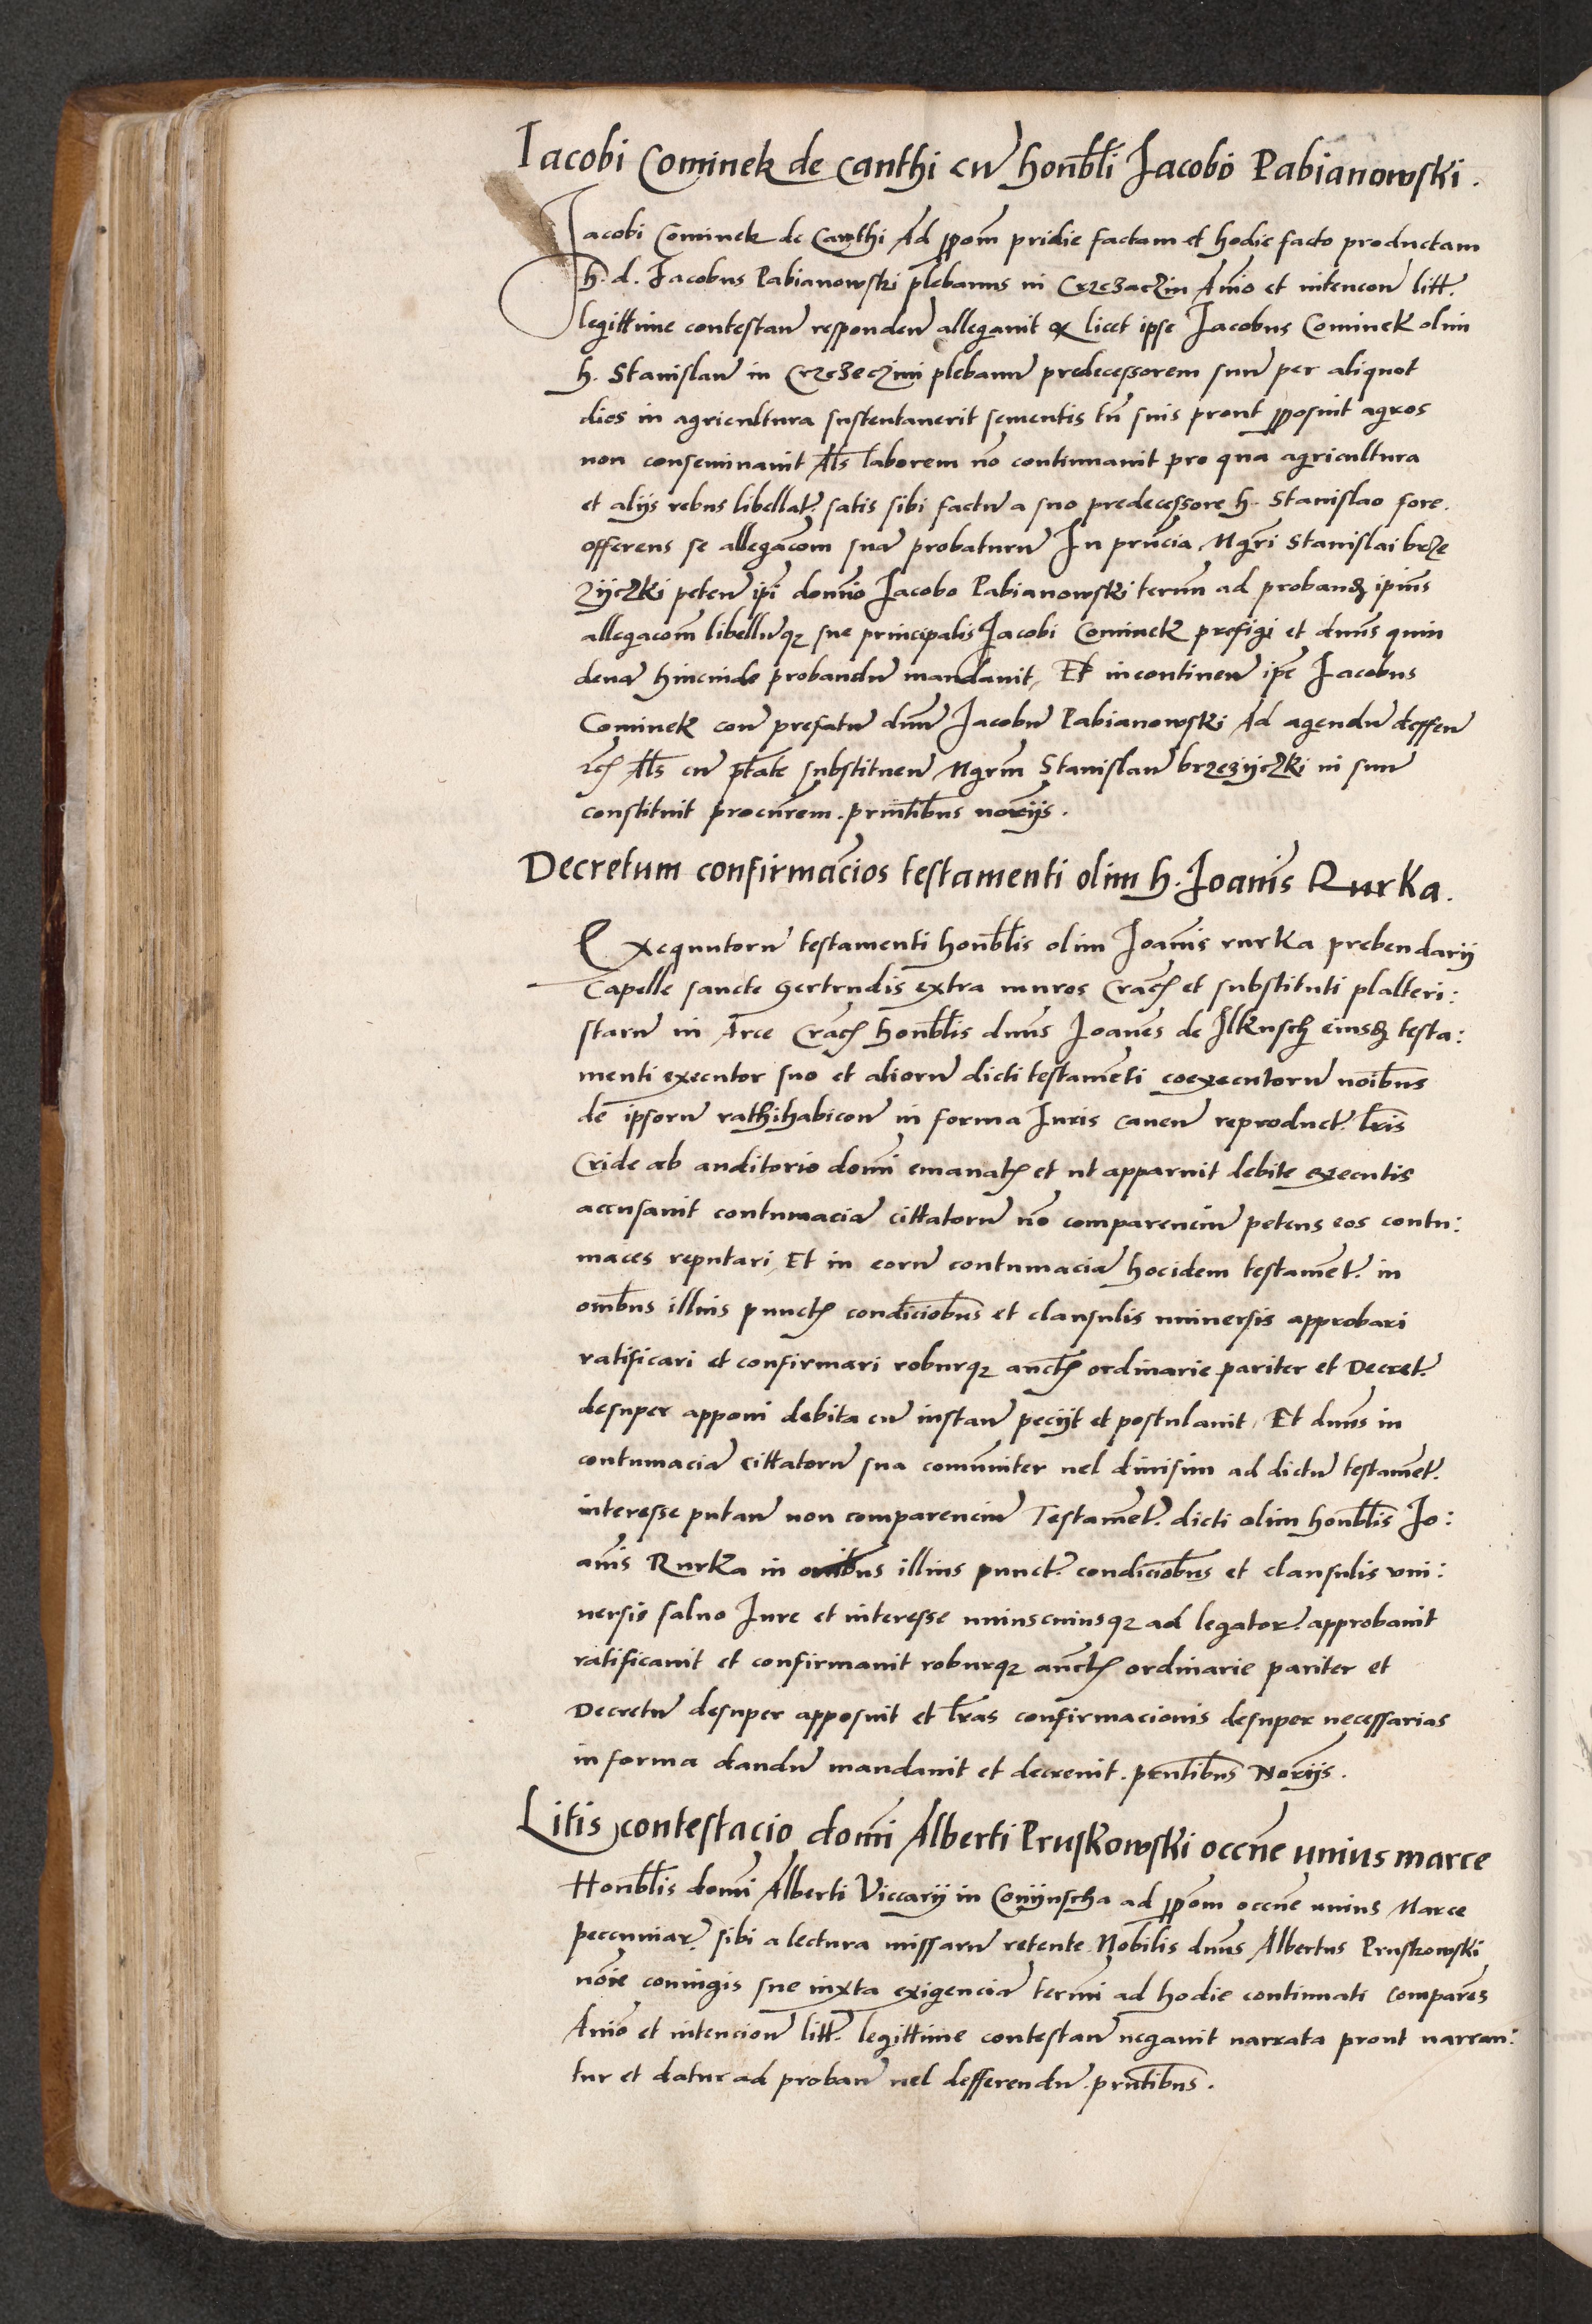 Iacobi Cominek de Canthi cu̅ hon̅bli Jacobo Pabianowski.
Iacobi Cominek de Canthi Ad ꝓpom̅ pridie factam et hodie facto productam
h. d. Jacobus Pabianowski plebanus in Crzezaczin An̅io et intencon̅ litt.
legittime contestan̅ responden̅ allegauit ꝙ licet ipse Jacobus Cominek olim
h. Stanislau̅ in Crzezeczini plebanu̅ predecessorem suu̅ per aliquot
dies in agricultura sustentauerit sementis tn̅ suis prout ꝓposuit agros
non conseminauit Als̅ laborem no̅ continuauit pro qua agricultura
et alijs rebus libellat. satis sibi factu̅ a suo predecessore h. Stanislao fore.
offerens se allegac̅om sua̅ probaturu̅ In pn̅cia Mgr̅i Stanislai brze
zijczki peten̅ ip̅i domi̅o Jacobo Pabianowski termi̅n ad proband ipius̅
allegacom̅ libellu̅qꝫ sue principalis Jacobi Cominek prefigi et dnus̅ quin
dena̅ hincinde probandu̅ mandauit, Et incontinen̅ ip̅e Jacobus
Cominek con̅ prefatu̅ dnu̅m Jacobu̅ Pabianowski Ad agendu̅ deffen
etc̅ Als̅ cu̅ pt̅ate substituen̅ Mgrm̅ Stanislau̅ brzezijczki in suu̅
constituit procur̅em. prn̅tibus nor̅ijs.
Decretum confirmac̅ios testamenti olim h. Joan̅is Rurka.
Exequutoru̅ testamenti honb̅lis olim Joan̅is rurka prebendarij
Capelle sancte Gertrudis extra muros Crac̅ et substituti psalteri:
staru̅ in Arce Crac̅ honb̅lis dnus̅ Joane̅s de Ilkusch eiusd testa:
menti executor suo et alioru̅ dicti testame̅ti coexecutorun̅ noi̅bus
de ipsoru̅ rathihabicon̅ in forma Iuris cauen̅ reproduct. l̅ris
Cride ab auditorio domi̅ emanat et ut apparuit debite executis
accusauit contumacia̅ cittatoru̅ no̅ comparenciu̅ petens eos contu:
maces reputari, Et in eoru̅ contumacia̅ hocidem testame̅t. in
omb̅us illius punct condic̅iobus et clausulis uniuersis approbari
ratificari et confirmari roburqꝫ auct̅ ordinarie pariter et Decret.
desuper apponi debita cu̅ instan̅ pecijt et postulauit, Et dnus̅ in
contumacia̅ cittatoru̅ sua comu̅niter uel diuisim ad dictu̅ testame̅t.
interesse putan̅ non comparenciu̅ Testame̅t. dicti olim honb̅lis Jo:
an̅is Rurka in omi̅bus illius punct. condic̅iobus et clausulis vni:
uersis saluo Iure et interesse uniuscuiusqꝫ ad legator. approbauit
ratificauit et confirmauit roburqꝫ auct̅ ordinarie pariter et
Decretu̅ desuper apposuit et l̅ras confirmacionis desuper necessarias
in forma dandu̅ mandauit et decreuit. prn̅tibus Nor̅ijs.
Litis contestacio domi̅ Alberti Pruskowski occne̅ unius marce
Honb̅lis domi̅ Alberti Viccarij in Conijuscha ad ꝓpom̅ occne̅ unius Marce
peccuniar. sibi a lectura missaru̅ retente Nobilis dnus̅ Albertus Pruskowski
noi̅e coniugis sue iuxta exigencia̅ termi̅ ad hodie continuati compare̅s
An̅io et intencion̅ litt. legittime contestan̅ negauit narrata prout narran:
tur et datur ad proban̅ uel defferendu̅. prn̅tibus.